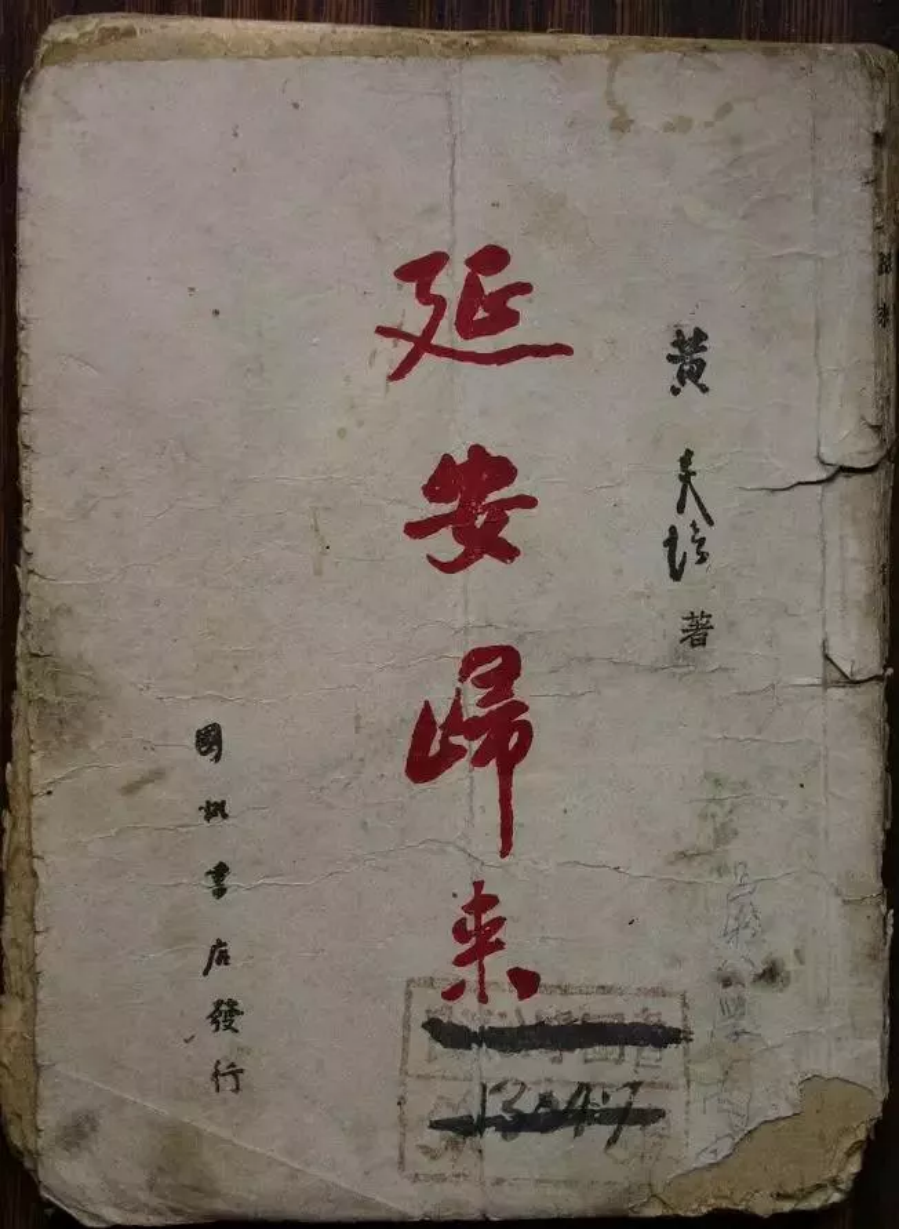 黄炎培著
延安歸来
國訊書店發行
13047